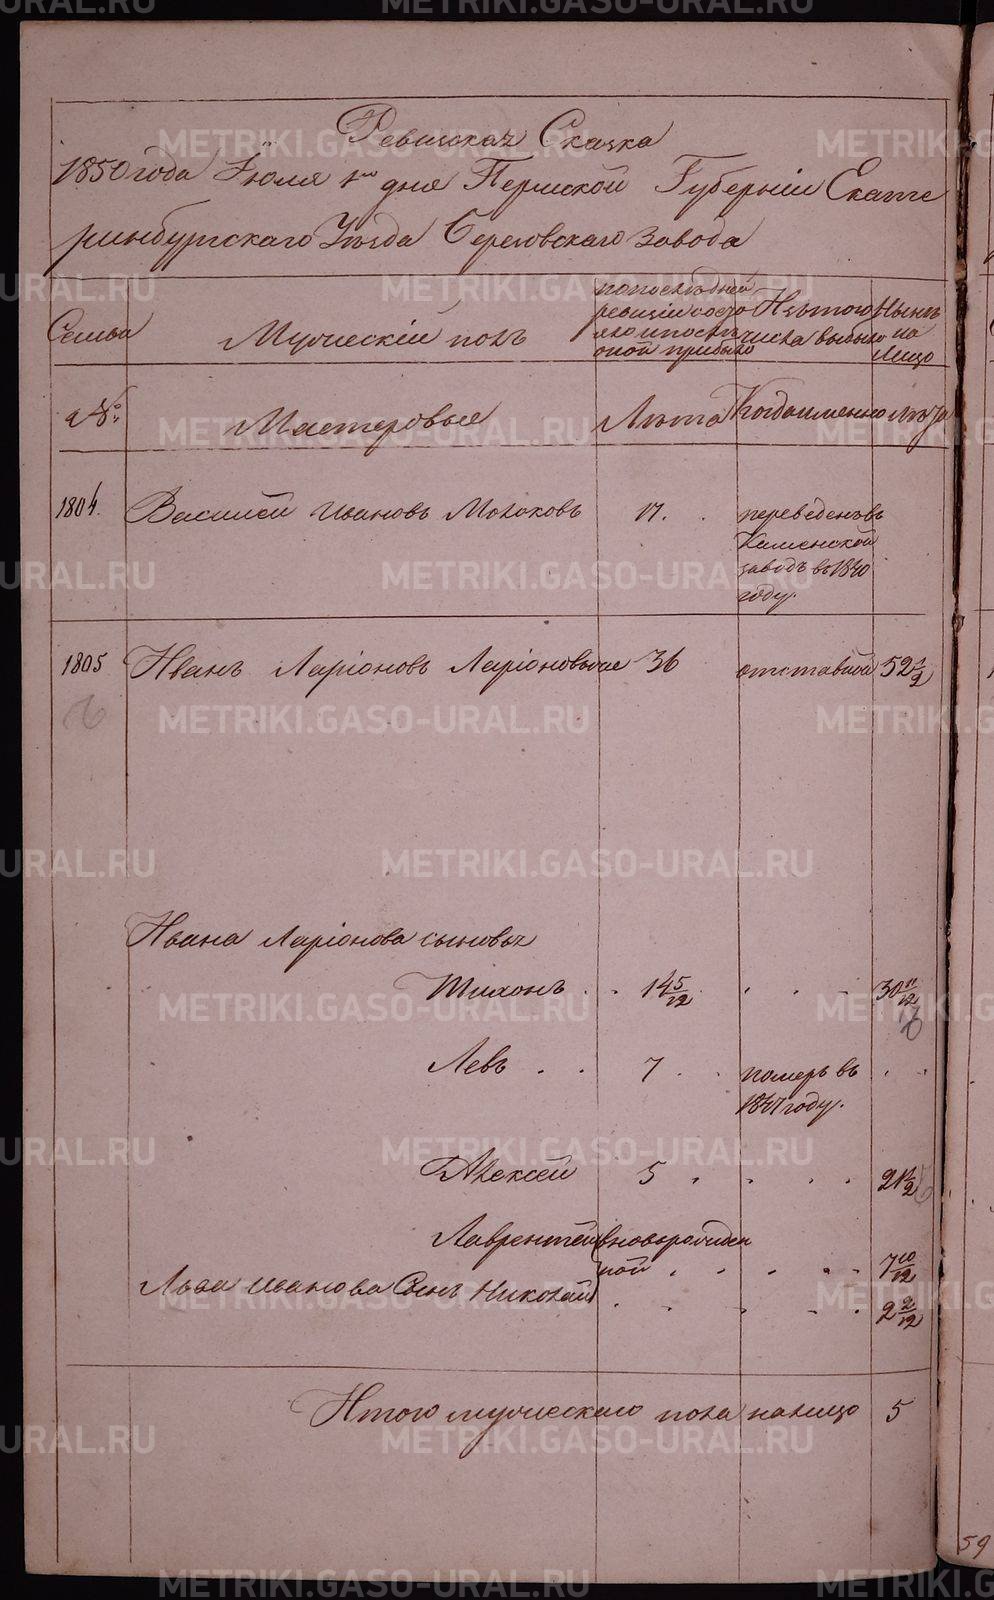 Ревизская Сказка
1850 года Іюля 1го дня Пермской Губерніи Екате
ринбургскаго Уѣзда Березовскаго завода
Семья
Мужескій полъ
по последней
ревизіи состо
яло и послѣ
оной прибыло
Изъ того
числа выбыло
Нынѣ
на
лицо
№
Мастеровые
Лѣта
Когда именно
лѣта
1804.
Василей Ивановъ Молоковъ
17.
переведенъ въ
Каменской
заводъ в 1840
году.
1805
Иванъ Ларіоновъ Ларіоновыхъ
36
отставной
52 1/2
Ивана Ларіонова сыновья
Тихонъ
14 5/12
30 11/12
Левъ
7
померъ въ
1847 году.
Алексей
5
21 1/2
Лаврентей
вноворожден
ной
7 10/12
Льва Иванова Сынъ Николай
2 2/12
Итого мужескаго пола налицо
5
59
METRIKI.GASO-URAL.RU